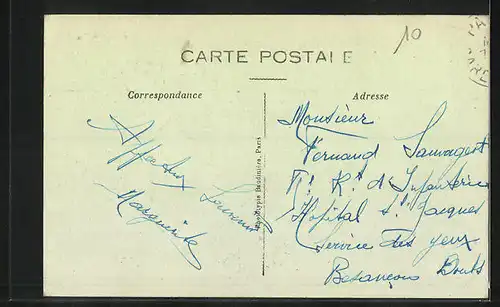 10
CARTE POSTALE
Correspondance
Adresse
Affectueux
Souvenir
Marguerite
Phototypie Baudinière, Paris
Monsieur
Fernand Sauvageot
Rt d'Infanterie
Hôpital St Jacques
Service des yeux
Besançon Doubs